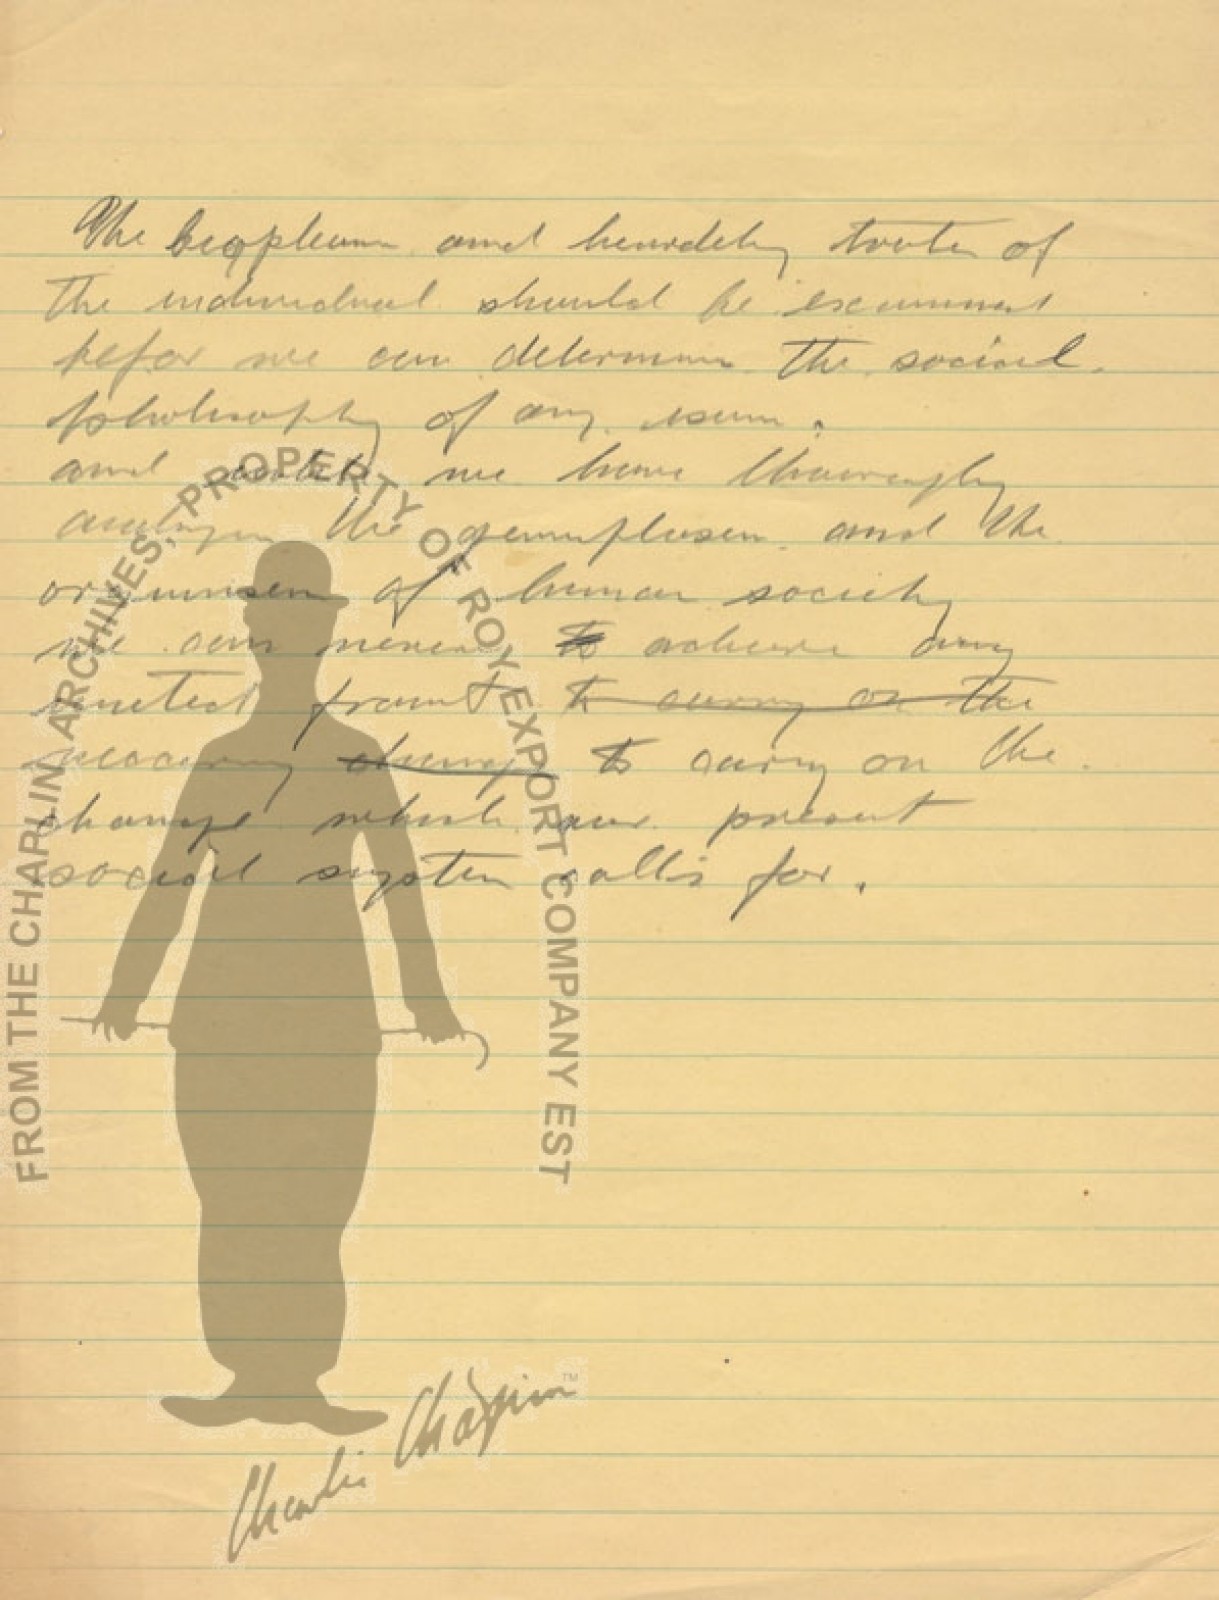 The bioplasm and heredity traits of
the individual should be examined
befor we can determin the social
philosophy of any ism.
and until we have thoroughly
the germplasm and the
of human society
we can never to achieve any
united front to carry on the
necessary change to carry on the
change which our present
social system calls for.
FROM THE CHAPLIN ARCHIVES, PROPERTY OF ROY EXPORT COMPANY EST
Charlie Chaplin™